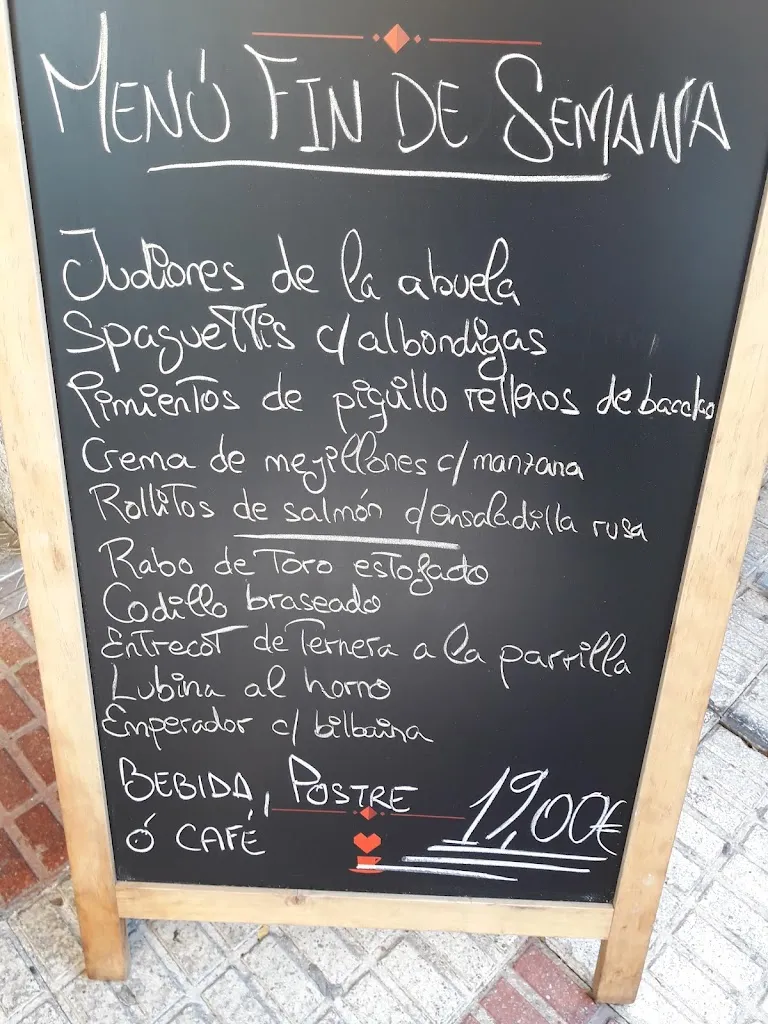 MENÚ FIN DE SEMANA
Judiones de la abuela
Spaguettis c/ albondigas
Pimientos de piquillo rellenos de bacalao
Crema de mejillones c/ manzana
Rollitos de salmón c/ensaladilla rusa
Rabo de Toro estofado
Codillo braseado
Entrecot de Ternera a la parrilla
Lubina al horno
Emperador c/ bilbaina
BEBIDA, POSTRE
Ó CAFÉ
19,00€